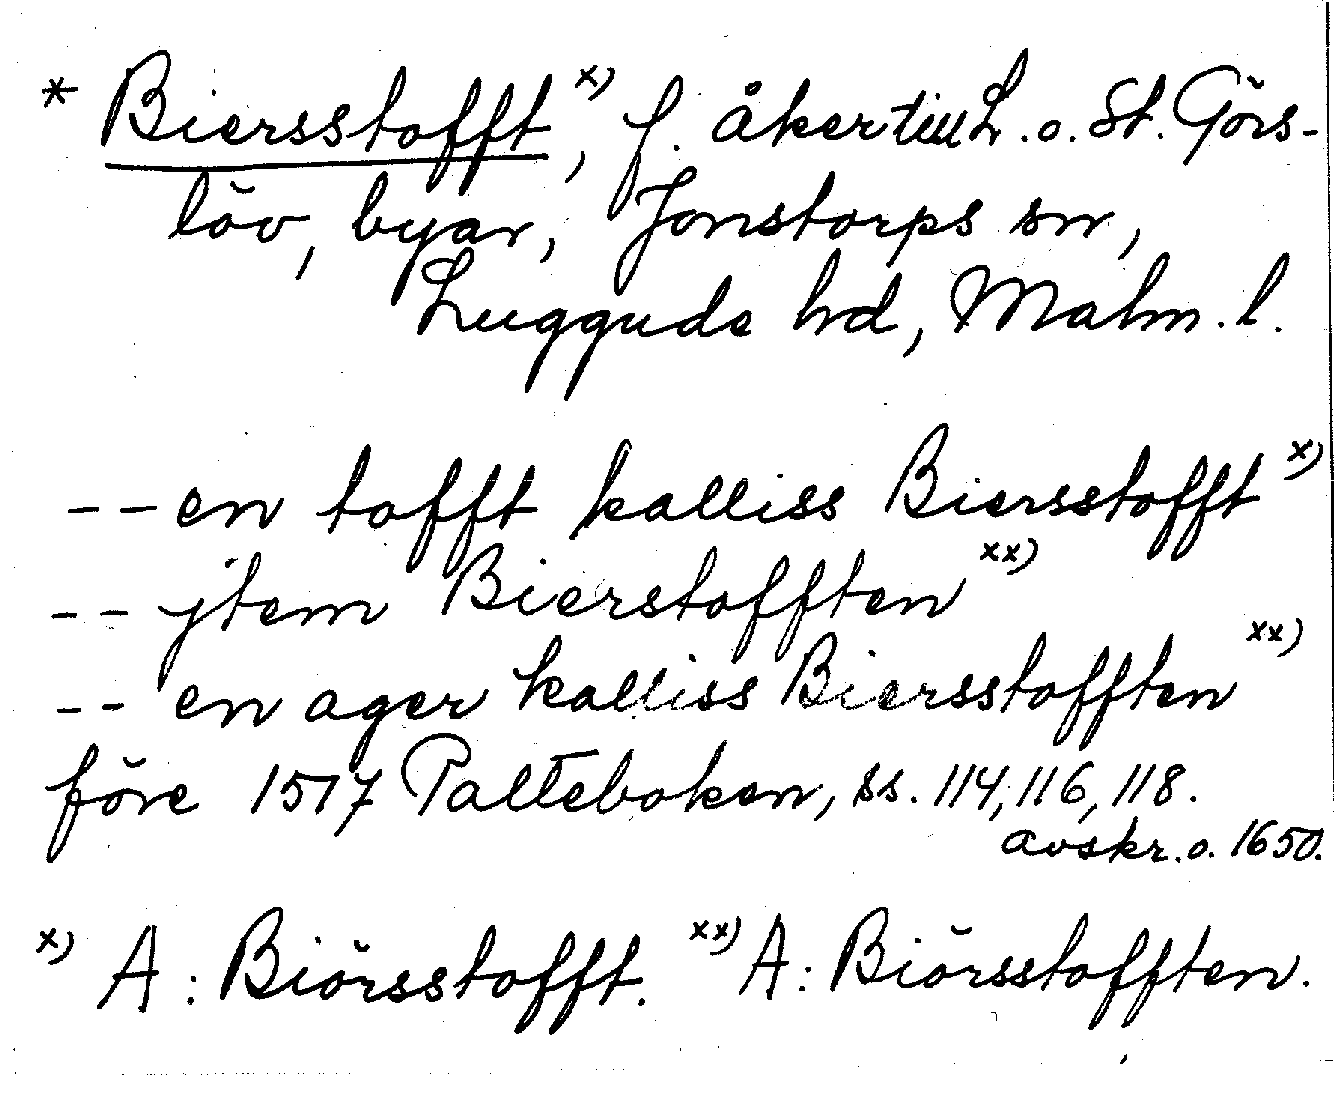 * Biersstofft,x) f. åker till L. o. St. Görs-
löv, byar, Jonstorps sn,
Luggude hd, Malm. l.
-- en tofft kalliss Biersstofft x)
-- jtem Bierstofften xx)
-- en ager kalliss Biersstofften xx)
före 1517 Palteboken, ss. 114, 116, 118.
avskr. o. 1650.
x) A: Biörsstofft. xx) A: Biörsstofften.